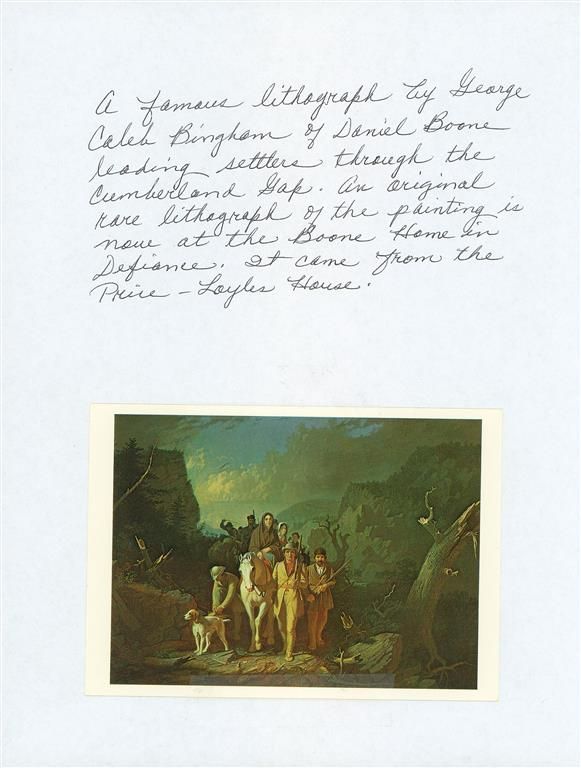 A famous lithograph by George
Caleb Bingham of Daniel Boone
leading settlers through the
Cumberland Gap. An original
rare lithograph of the painting is
now at the Boone Home in
Defiance. It came from the
Price - Loyles House.